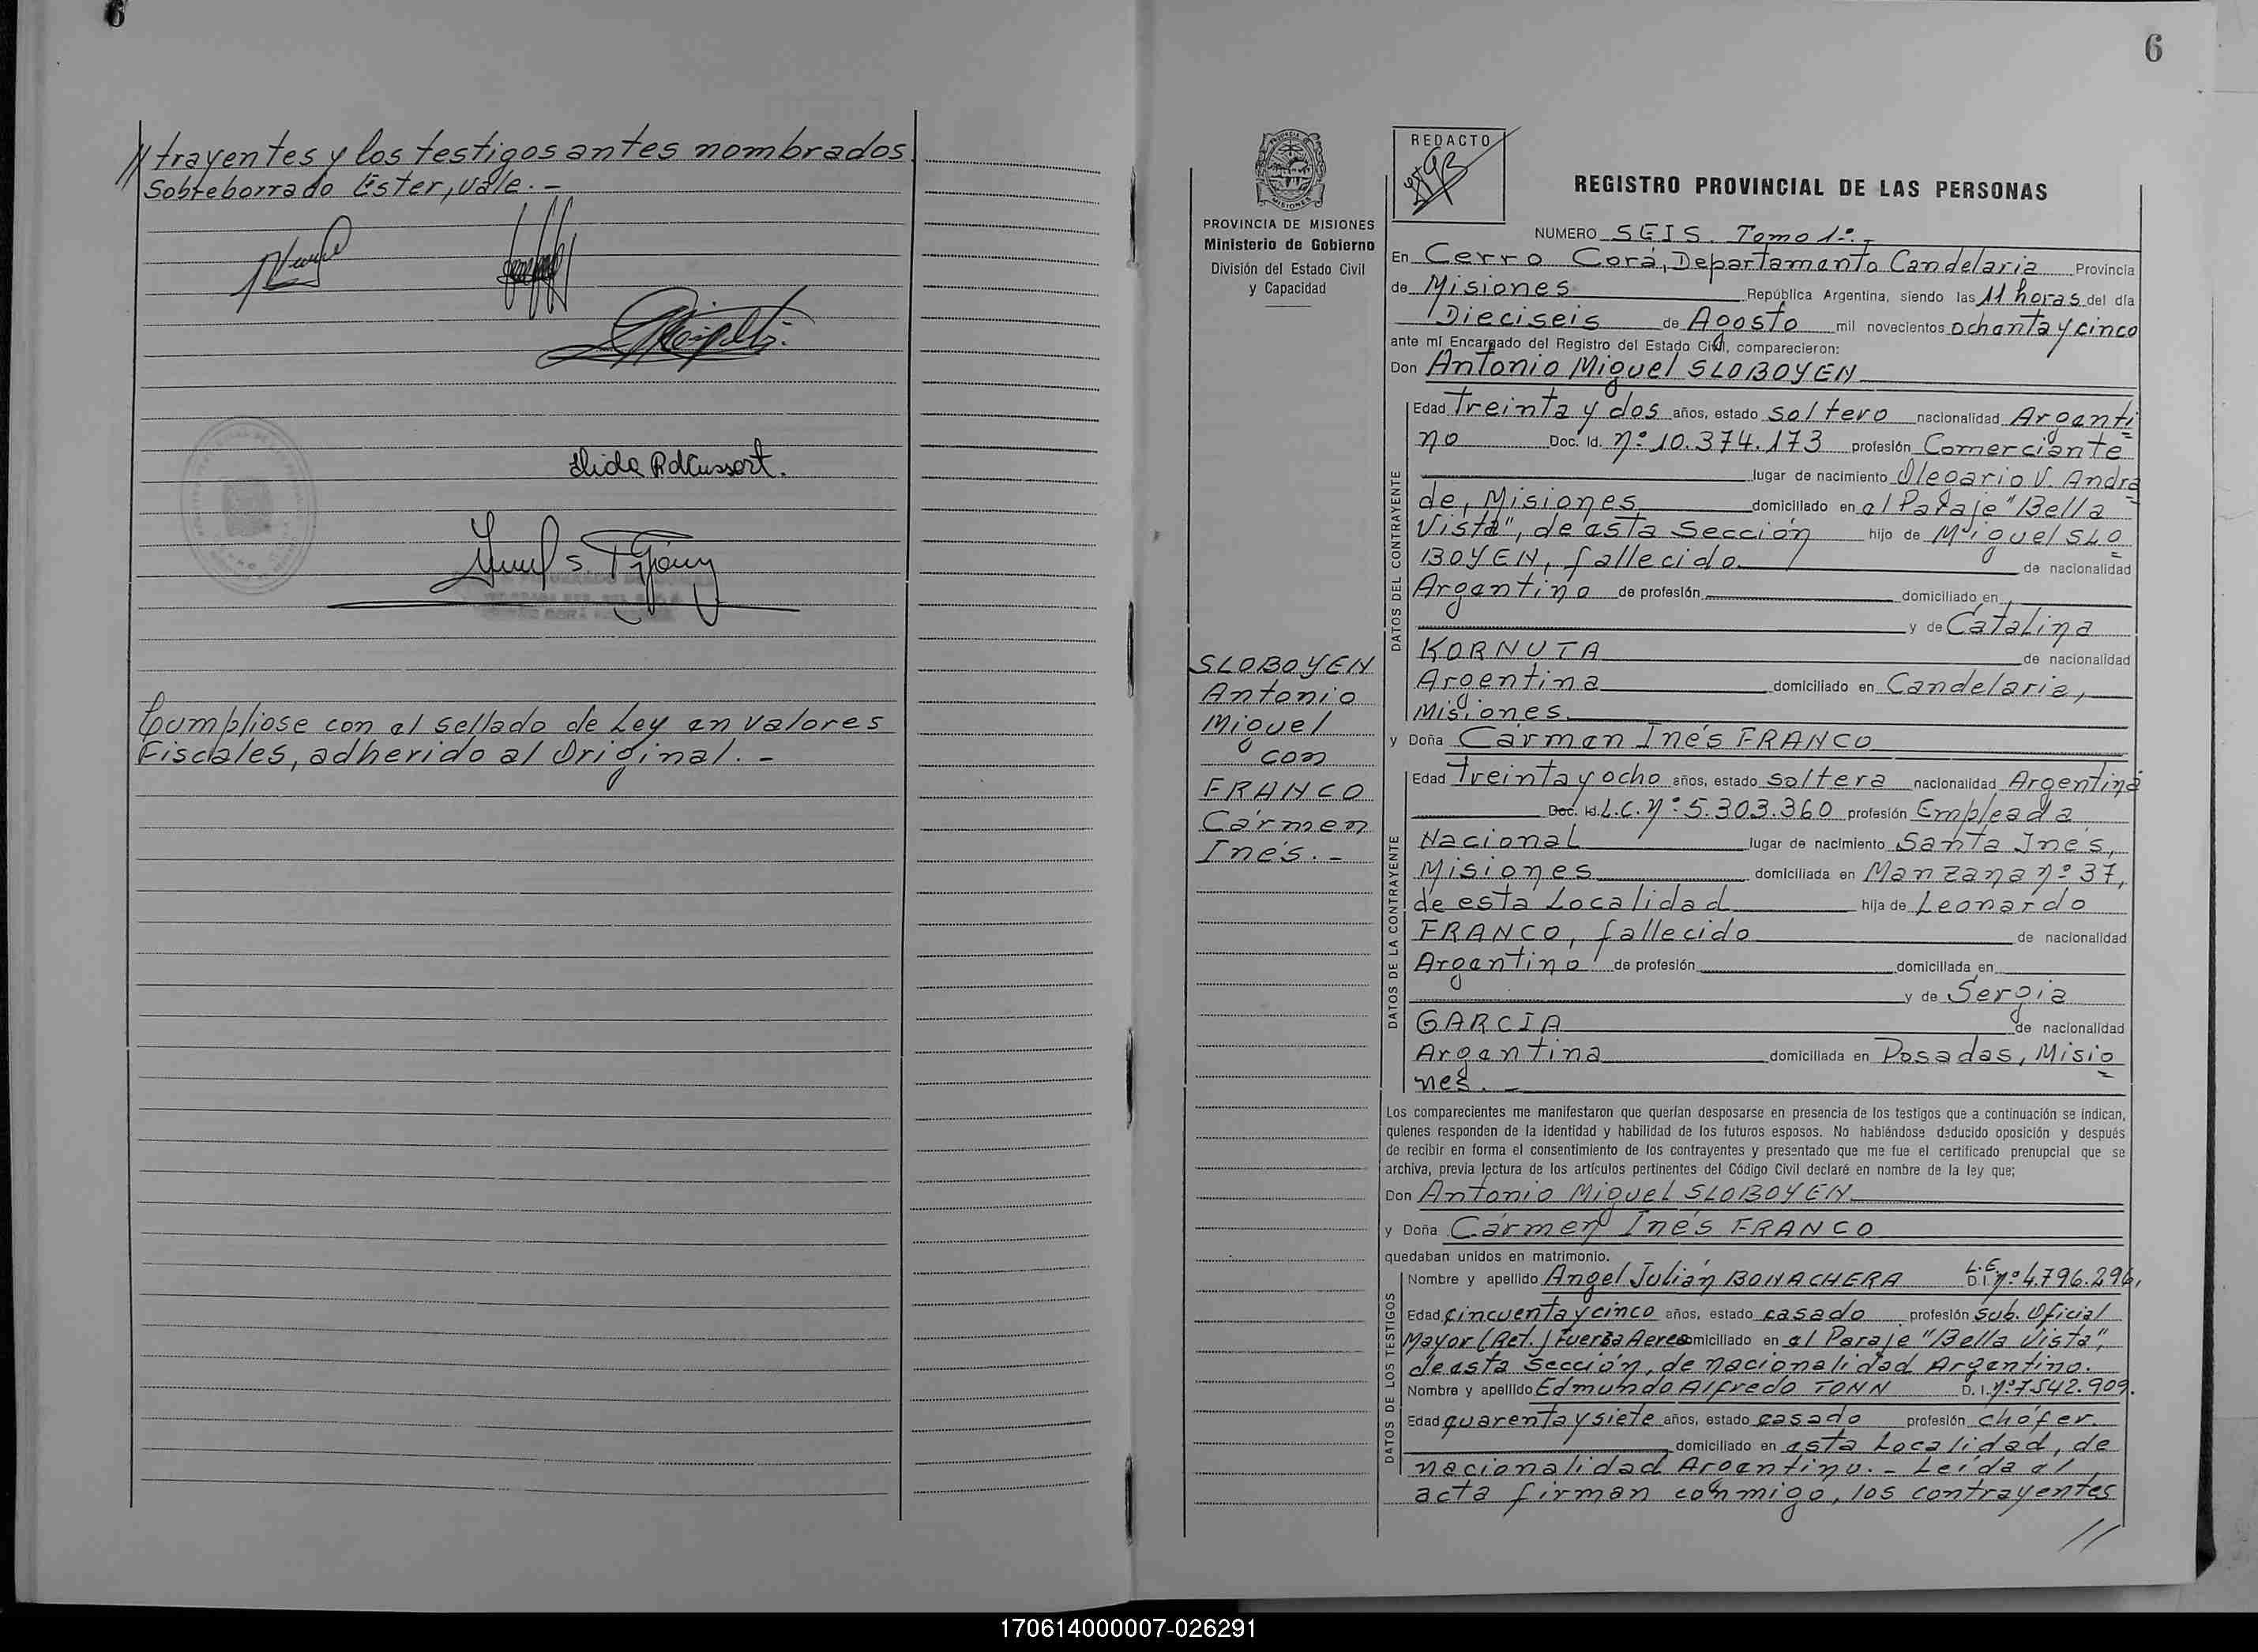 // trayentes y los testigos antes nombrados.
Sobreborrado Ester, vale. -
Cumpliose con el sellado de Ley en valores
Fiscales, adherido al Original. -
6
REDACTO
PROVINCIA DE MISIONES
Ministerio de Gobierno
División del Estado Civil
y Capacidad
SLOBOYEN
Antonio
Miguel
con
FRANCO
Cármen
Inés. -
REGISTRO PROVINCIAL DE LAS PERSONAS
NUMERO SEIS. Tomo 1º. -
En Cerro Corá, Departamento Candelaria Provincia
de Misiones República Argentina, siendo las 11 horas del día
Dieciseis de Agosto mil novecientos ochenta y cinco
ante mí Encargado del Registro del Estado Civil, comparecieron:
Don Antonio Miguel SLOBOYEN
DATOS DEL CONTRAYENTE
Edad Treinta y dos años, estado soltero nacionalidad Argenti=
no Doc. Id. nº 10.374.173 profesión Comerciante
lugar de nacimiento Olegario V. Andra=
de, Misiones domiciliado en el Paraje "Bella
Vista", de esta Sección hijo de Miguel SLO=
BOYEN, fallecido de nacionalidad
Argentino de profesión domiciliado en
y de Catalina
KORNUTA de nacionalidad
Argentina domiciliado en Candelaria,
Misiones
y Doña Cármen Inés FRANCO
DATOS DE LA CONTRAYENTE
Edad Treinta y ocho años, estado soltera nacionalidad Argentina
Doc. Id. L.C. nº 5.303.360 profesión Empleada
Nacional lugar de nacimiento Santa Inés,
Misiones domiciliada en Manzana nº 37,
de esta Localidad hija de Leonardo
FRANCO, fallecido de nacionalidad
Argentino de profesión domiciliada en
y de Sergia
GARCIA de nacionalidad
Argentina domiciliada en Posadas, Misio=
nes. -
Los comparecientes me manifestaron que querían desposarse en presencia de los testigos que a continuación se indican,
quienes responden de la identidad y habilidad de los futuros esposos. No habiéndose deducido oposición y después
de recibir en forma el consentimiento de los contrayentes y presentado que me fue el certificado prenupcial que se
archiva, previa lectura de los artículos pertinentes del Código Civil declaré en nombre de la ley que;
Don Antonio Miguel SLOBOYEN
y Doña Cármen Inés FRANCO
quedaban unidos en matrimonio.
DATOS DE LOS TESTIGOS
Nombre y apellido Angel Julián BONACHERA L.E. D.I. nº 4.796.296,
Edad cincuenta y cinco años, estado casado profesión Sub. Oficial
Mayor (Ret.) Fuerza Aerea domiciliado en el Paraje "Bella Vista",
de esta Sección, de nacionalidad Argentino.
Nombre y apellido Edmundo Alfredo TONN D. I. nº 7.542.909.
Edad quarenta y siete años, estado casado profesión chófer
domiciliado en esta Localidad, de
nacionalidad Argentino. - Leída el
acta firman conmigo, los contrayentes
//
170614000007-026291